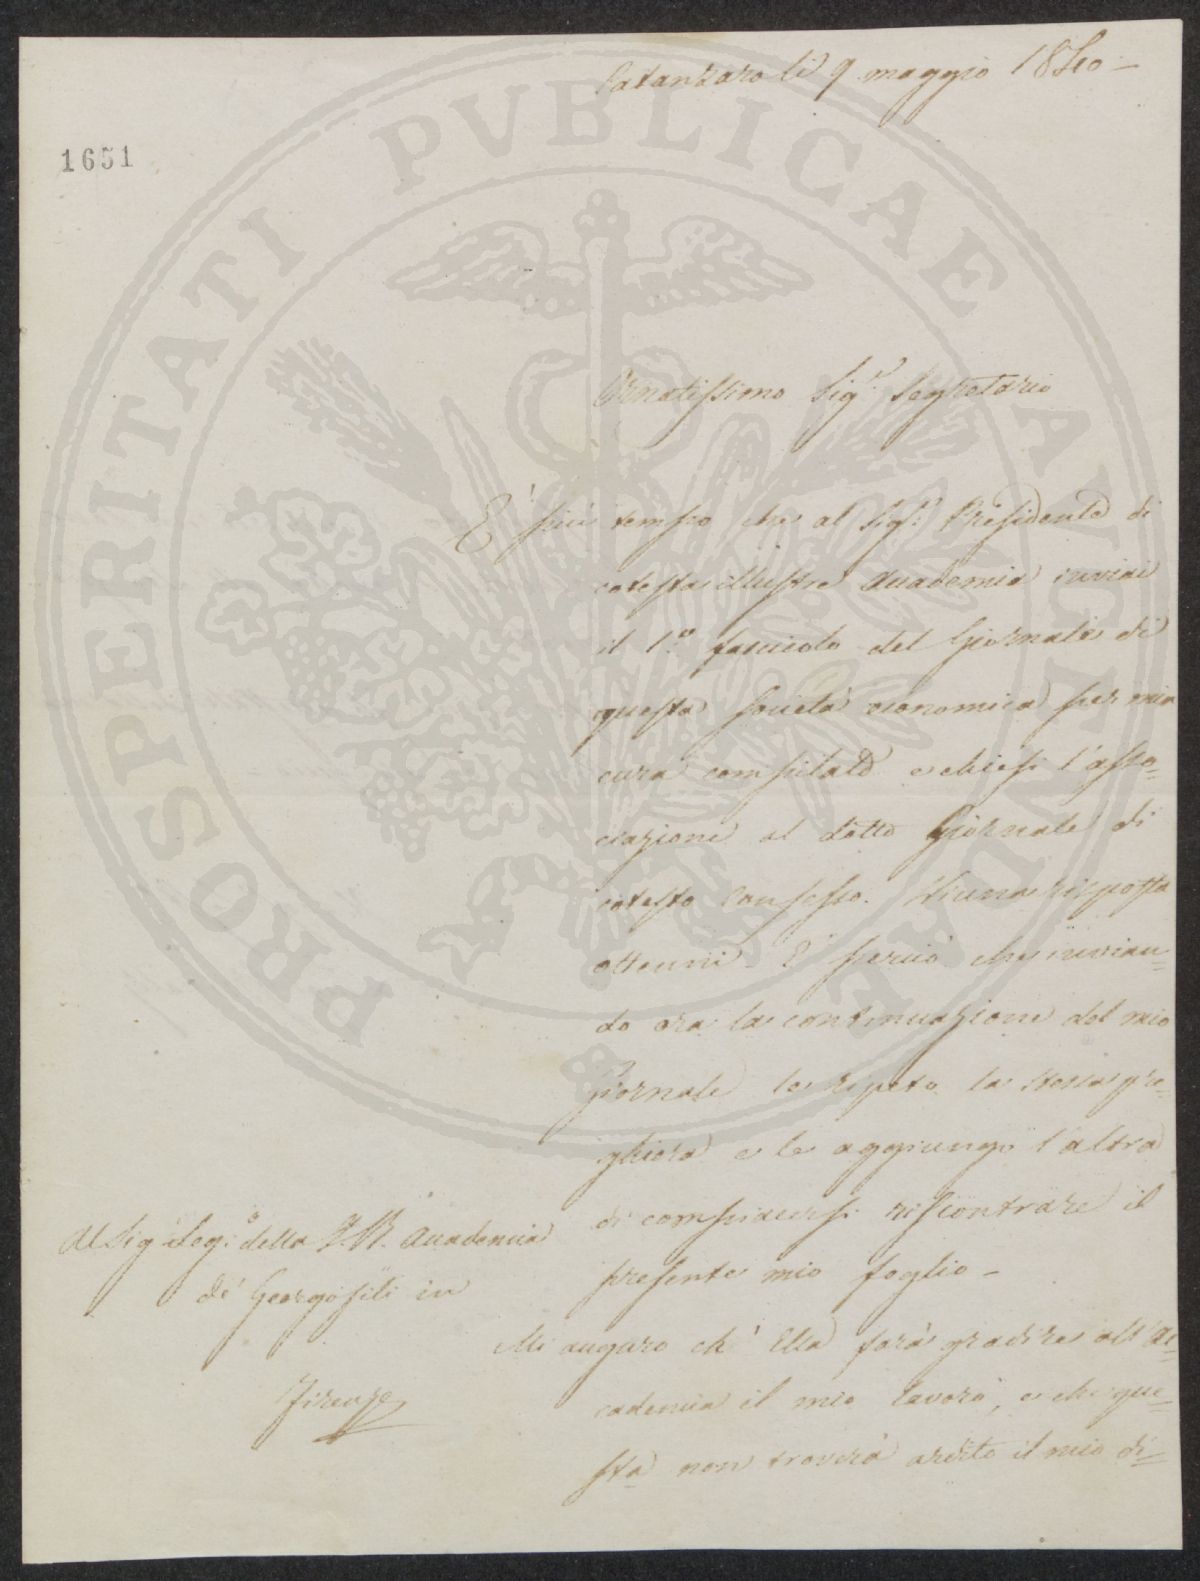 Catanzaro li 9 maggio 1840
1651
PROSPERITATI PVBLICAE AVGENDAE
Ornatissimo Sig.r Segretario
E' più tempo che al Sig.r Presidente di
cotesta illustre Accademia inviai
il 1.o fascicolo del Giornale di
questa società economica per mia
cura compilato e chiesi l'asso=
ciazione al dotto Giornale di
cotesto Consesso. Niuna risposta
ottenni. E' perciò che invian=
do ora la continuazione del mio
Giornale le ripeto la stessa pre=
ghiera e le aggiungo l'altra
di compiacersi riscontrare il
presente mio foglio -
Mi auguro ch' Ella farà gradire all'Ac=
cademia il mio lavoro, e che que=
sta non troverà ardito il mio di=
Al Sig. Seg.o della I. R. Accademia
de' Georgofili in
Firenze